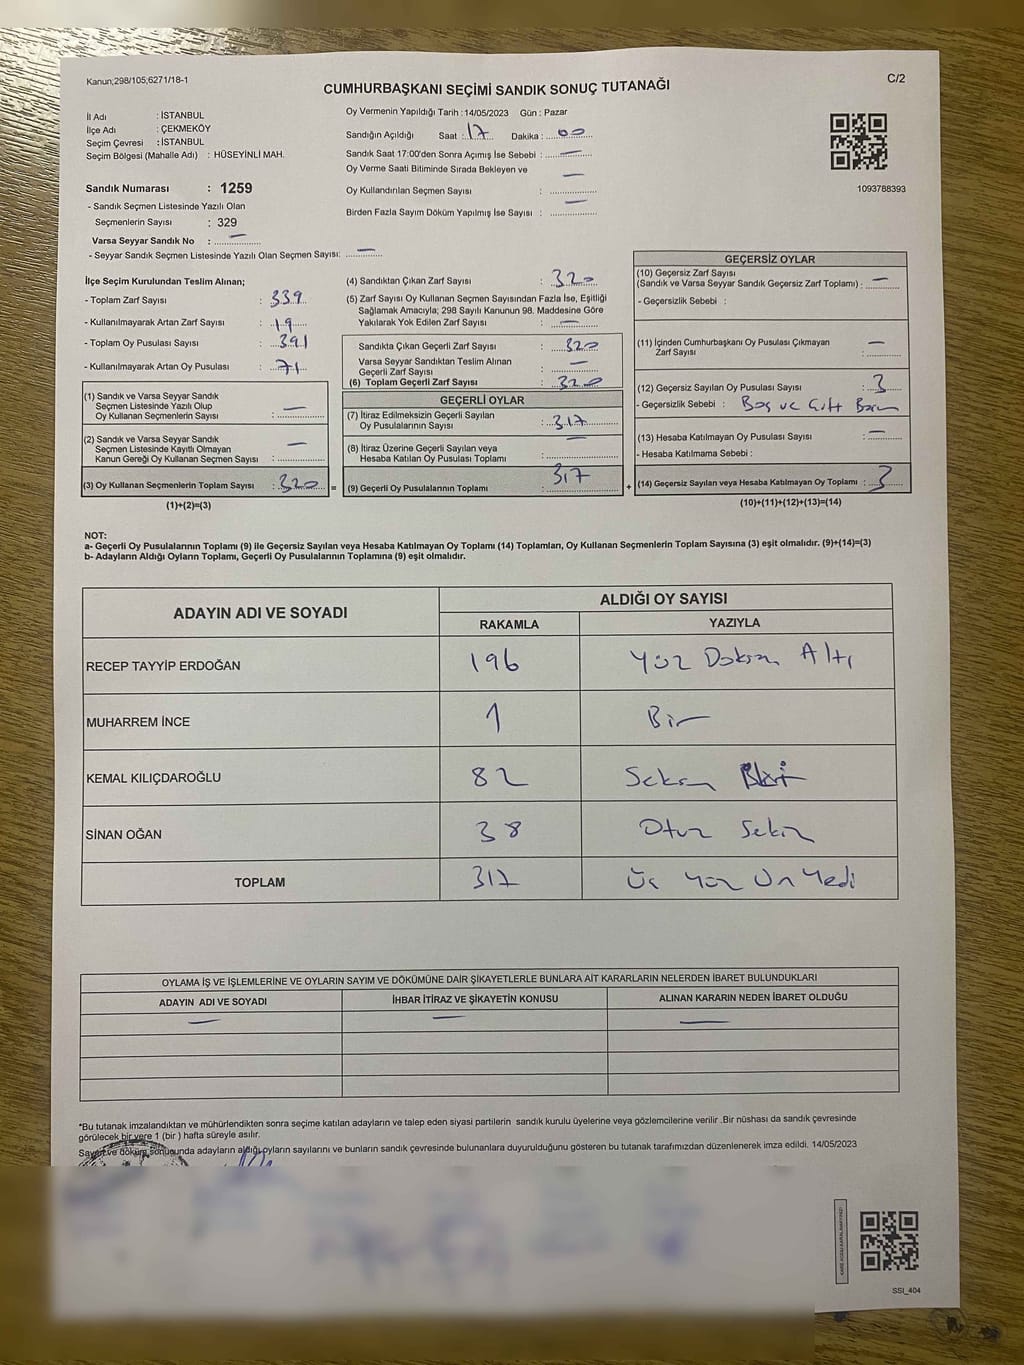 Kanun;298/105;6271/18-1
C/2
CUMHURBAŞKANI SEÇİMİ SANDIK SONUÇ TUTANAĞI
İl Adı : İSTANBUL
İlçe Adı : ÇEKMEKÖY
Seçim Çevresi : İSTANBUL
Seçim Bölgesi (Mahalle Adı) : HÜSEYİNLİ MAH.
Sandık Numarası : 1259
- Sandık Seçmen Listesinde Yazılı Olan
Seçmenlerin Sayısı : 329
Varsa Seyyar Sandık No : —
- Seyyar Sandık Seçmen Listesinde Yazılı Olan Seçmen Sayısı: —
Oy Vermenin Yapıldığı Tarih : 14/05/2023 Gün : Pazar
Sandığın Açıldığı Saat : 17 Dakika : 00
Sandık Saat 17:00'den Sonra Açımış İse Sebebi : —
Oy Verme Saati Bitiminde Sırada Bekleyen ve —
Oy Kullandırılan Seçmen Sayısı :
Birden Fazla Sayım Döküm Yapılmış İse Sayısı : —
1093788393
İlçe Seçim Kurulundan Teslim Alınan;
- Toplam Zarf Sayısı : 339
- Kullanılmayarak Artan Zarf Sayısı : 19
- Toplam Oy Pusulası Sayısı : 391
- Kullanılmayarak Artan Oy Pusulası : 71
(1) Sandık ve Varsa Seyyar Sandık
Seçmen Listesinde Yazılı Olup
Oy Kullanan Seçmenlerin Sayısı : —
(2) Sandık ve Varsa Seyyar Sandık
Seçmen Listesinde Kayıtlı Olmayan
Kanun Gereği Oy Kullanan Seçmen Sayısı : —
(3) Oy Kullanan Seçmenlerin Toplam Sayısı : 320 =
(1)+(2)=(3)
(4) Sandıktan Çıkan Zarf Sayısı : 320
(5) Zarf Sayısı Oy Kullanan Seçmen Sayısından Fazla İse, Eşitliği
Sağlamak Amacıyla; 298 Sayılı Kanunun 98. Maddesine Göre
Yakılarak Yok Edilen Zarf Sayısı : —
Sandıkta Çıkan Geçerli Zarf Sayısı : 320
Varsa Seyyar Sandıktan Teslim Alınan
Geçerli Zarf Sayısı : —
(6) Toplam Geçerli Zarf Sayısı : 320
GEÇERLİ OYLAR
(7) İtiraz Edilmeksizin Geçerli Sayılan
Oy Pusulalarının Sayısı : 317
(8) İtiraz Üzerine Geçerli Sayılan veya —
Hesaba Katılan Oy Pusulası Toplamı :
(9) Geçerli Oy Pusulalarının Toplamı : 317 +
GEÇERSİZ OYLAR
(10) Geçersiz Zarf Sayısı
(Sandık ve Varsa Seyyar Sandık Geçersiz Zarf Toplamı) : —
- Geçersizlik Sebebi :
(11) İçinden Cumhurbaşkanı Oy Pusulası Çıkmayan —
Zarf Sayısı :
(12) Geçersiz Sayılan Oy Pusulası Sayısı : 3
- Geçersizlik Sebebi : Boş ve Çift
(13) Hesaba Katılmayan Oy Pusulası Sayısı : —
- Hesaba Katılmama Sebebi :
(14) Geçersiz Sayılan veya Hesaba Katılmayan Oy Toplamı : 3
(10)+(11)+(12)+(13)=(14)
NOT:
a- Geçerli Oy Pusulalarının Toplamı (9) ile Geçersiz Sayılan veya Hesaba Katılmayan Oy Toplamı (14) Toplamları, Oy Kullanan Seçmenlerin Toplam Sayısına (3) eşit olmalıdır. (9)+(14)=(3)
b- Adayların Aldığı Oyların Toplamı, Geçerli Oy Pusulalarının Toplamına (9) eşit olmalıdır.
ADAYIN ADI VE SOYADI ALDIĞI OY SAYISI
RAKAMLA YAZIYLA
RECEP TAYYİP ERDOĞAN 196 Yüz Doksan Altı
MUHARREM İNCE 1 Bir
KEMAL KILIÇDAROĞLU 82 Seksen
SİNAN OĞAN 38 Otuz Sekiz
TOPLAM 317 Üç Yüz On Yedi
OYLAMA İŞ VE İŞLEMLERİNE VE OYLARIN SAYIM VE DÖKÜMÜNE DAİR ŞİKAYETLERLE BUNLARA AİT KARARLARIN NELERDEN İBARET BULUNDUKLARI
ADAYIN ADI VE SOYADI İHBAR İTİRAZ VE ŞİKAYETİN KONUSU ALINAN KARARIN NEDEN İBARET OLDUĞU
— — —
*Bu tutanak imzalandıktan ve mühürlendikten sonra seçime katılan adayların ve talep eden siyasi partilerin sandık kurulu üyelerine veya gözlemcilerine verilir .Bir nüshası da sandık çevresinde
görülecek bir yere 1 (bir ) hafta süreyle asılır.
Sayım ve döküm sonucunda adayların aldığı oyların sayılarını ve bunların sandık çevresinde bulunanlara duyurulduğunu gösteren bu tutanak tarafımızdan düzenlenerek imza edildi. 14/05/2023
SSI_404